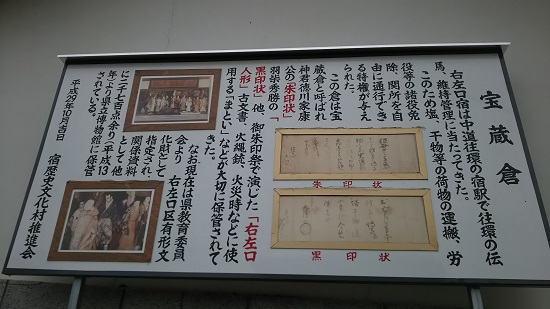 宝蔵倉
右左口宿は中道往環の宿駅で往環の伝
馬、維持管理に当たってきた。
このため塩、干物等の荷物の運搬、労
役等の諸役免
除、関所を自
由に通行でき
る特権が与え
られた。
この倉は宝
蔵倉と呼ばれ
神君徳川家康
公の「朱印状」
羽柴秀勝の「
黒印状」他、御朱印祭で演じた「右左口
人形」古文書、火縄銃、火災時などに使
用する「まとい」などが大切に保管されて
きた。
なお現在は県教育委員
会より 右左口区有形文
化財として
指定され、
関係資料
として他
に二千七百点余り(平成13
年)より県立博物館に保管
されている。
平成29年10月吉日
宿歴史文化村推進会
朱印状
黒印状